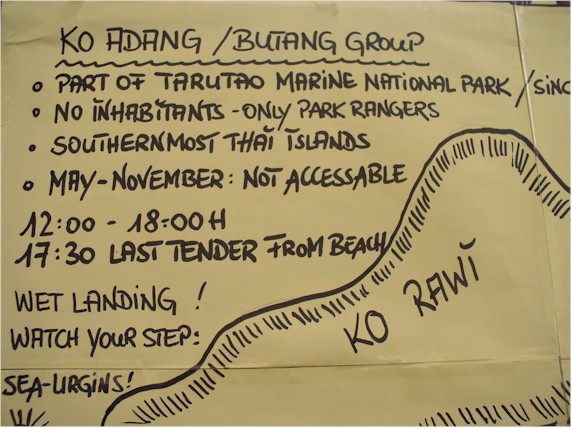 KO ADANG / BUTANG GROUP
• PART OF TARUTAO MARINE NATIONAL PARK / SINC
• NO INHABITANTS - ONLY PARK RANGERS
• SOUTHERNMOST THAI ISLANDS
• MAY - NOVEMBER: NOT ACCESSABLE
12:00 - 18:00 H
17:30 LAST TENDER FROM BEACH
WET LANDING !
WATCH YOUR STEP:
SEA-URGINS!
KO RAWI